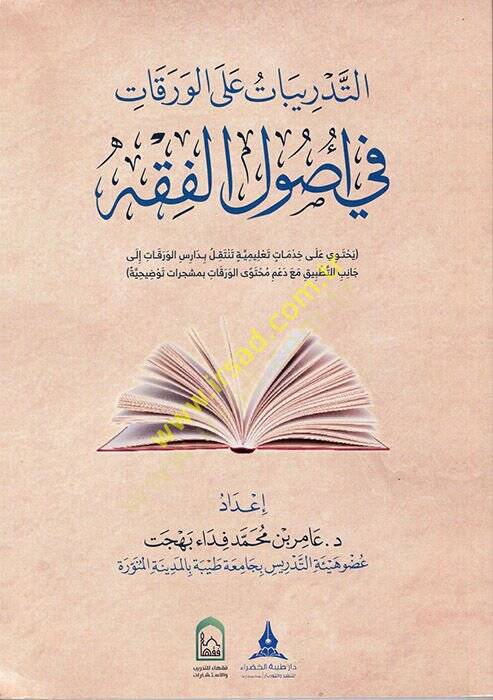 التَّدْرِيبَاتُ عَلَى الوَرَقَاتِ
فِي أُصُولِ الْفِقْهِ
(يَحْتَوِي عَلَى خِدْمَاتٍ تَعْلِيمِيَّةٍ تَنْتَقِلُ بِدَارِسِ الوَرَقَاتِ إِلَى
جَانِبِ التَّطْبِيقِ مَعَ دَعْمِ مُحْتَوَى الوَرَقَاتِ بِمُشَجَّرَاتٍ تَوْضِيحِيَّةٍ)
www.irsad.com.tr
إِعْدَادُ
د. عَامِر بْن مُحَمَّد فِدَاء بَهْجَت
عُضْو هَيْئَة التَّدْرِيس بِجَامِعَة طَيْبَة بِالمَدِينَةِ المُنَوَّرَة
فقهاء للتدريب
والاستشارات
دار طيبة الخضراء